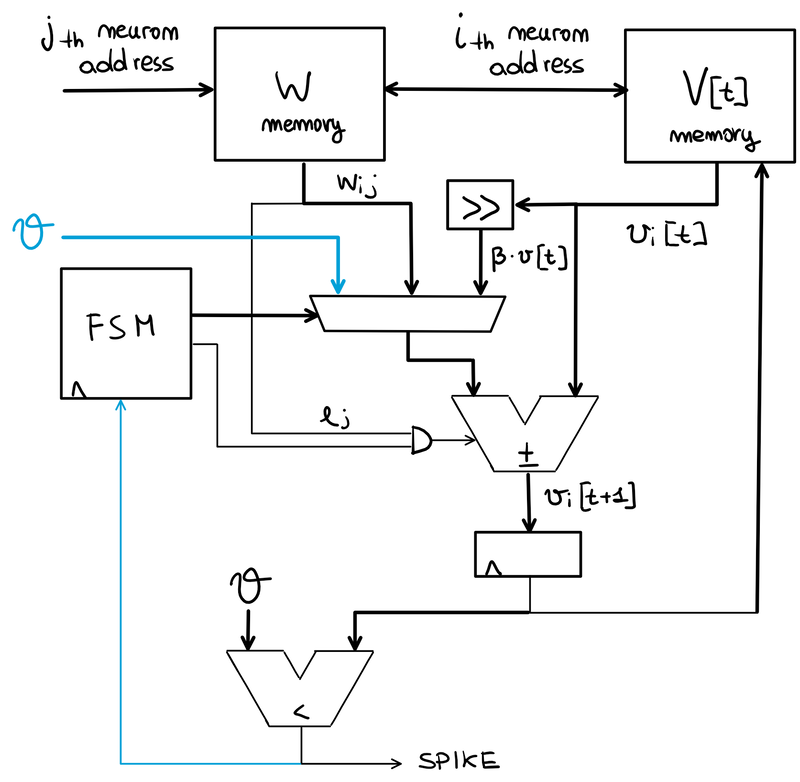 jth neuron
address
W
memory
ith neuron
address
V[t]
memory
wij
>>
ϑ
β·v[t]
vi[t]
FSM
ej
±
vi[t+1]
ϑ
<
SPIKE